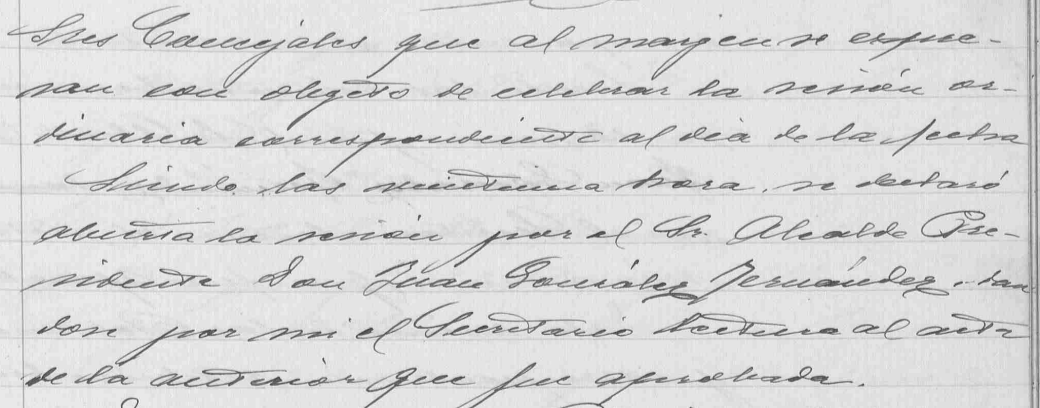 Sres Concejales que al margen se expre-
san con objeto de celebrar la sesión or-
dinaria correspondiente al dia de la fecha
Siendo las veintiuna hora, se declaró
abierta la sesión por el Sr. Alcalde Pre-
sidente Don Juan González Fernández, dan
dose por mi el Secretario lectura al acta
de la anterior que fue aprobada.